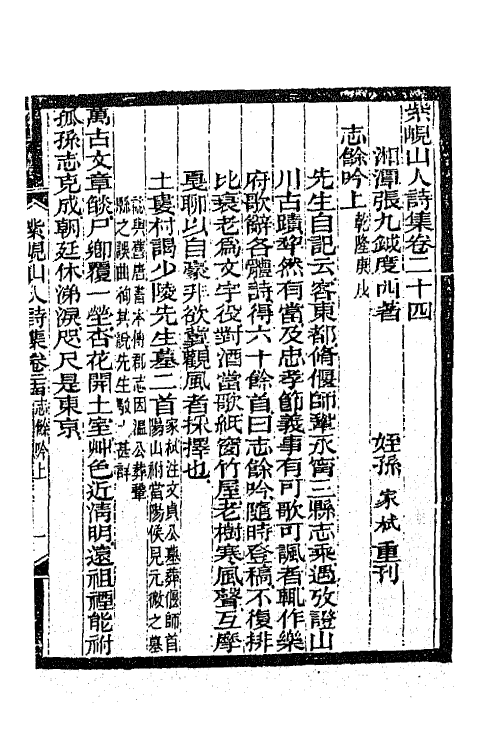 紫峴山人詩集卷二十四
湘潭張九鉞度西著　姪孫家栻重刊
志餘吟上乾隆庚戌
先生自記云客東都脩偃師鞏永甯三縣志乘遇攷證山
川古蹟犂然有當及忠孝節義事有可歌可諷者輒作樂
府歌辭各體詩得六十餘首曰志餘吟隨時登稿不復排
比衰老爲文字役對酒當歌紙窗竹屋老樹寒風聲互摩
戛聊以自豪非欲冀觀風者採擇也
土婁村謁少陵先生墓二首家栻注文貞公墓葬偃師首
陽山祔當陽侯見元微之墓
誌與舊唐書本傳郡志因溫公葬鞏
縣之誤曲徇其說先生駁 甚詳
萬古文章燄尸鄉卽覆一塋杏花開土室艸色近淸明遠祖禋能祔
孤孫志克成朝廷休涕淚咫尺是東京
紫峴山人詩集卷二十四志餘吟上　一